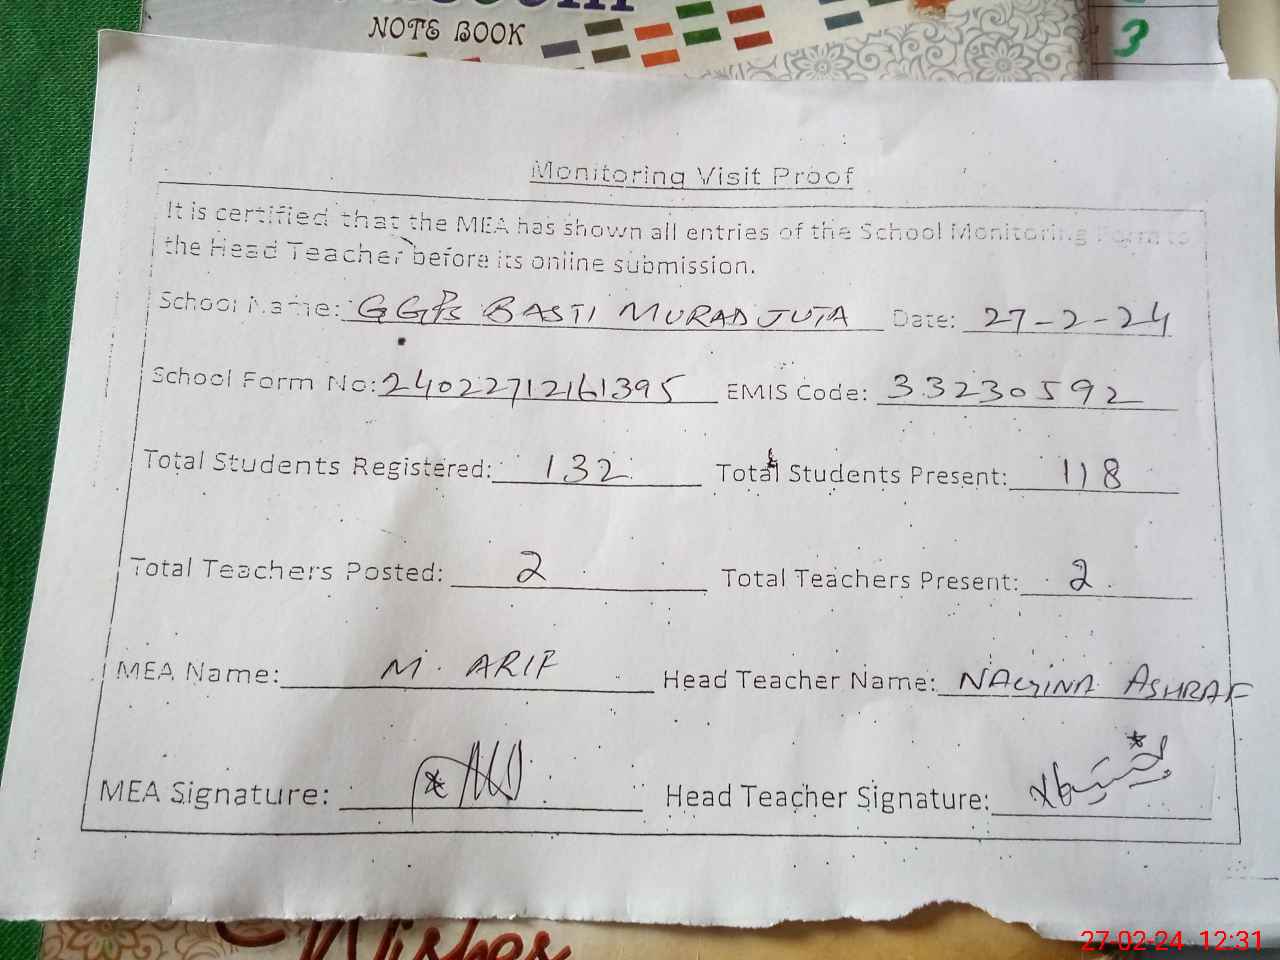 NOTE BOOK
3
Monitoring Visit Proof
It is certified that the MEA has shown all entries of the School Monitoring Form to
the Head Teacher before its online submission.
School Name: GGPS BASTI MURAD JUTA Date: 27-2-24
School Form No: 24022712161395 EMIS Code: 33230592
Total Students Registered: 132 Total Students Present: 118
Total Teachers Posted: 2 Total Teachers Present: 2
MEA Name: M. ARIF Head Teacher Name: NAGINA ASHRAF
MEA Signature: Head Teacher Signature:
Wishes
27-02-24 12:31